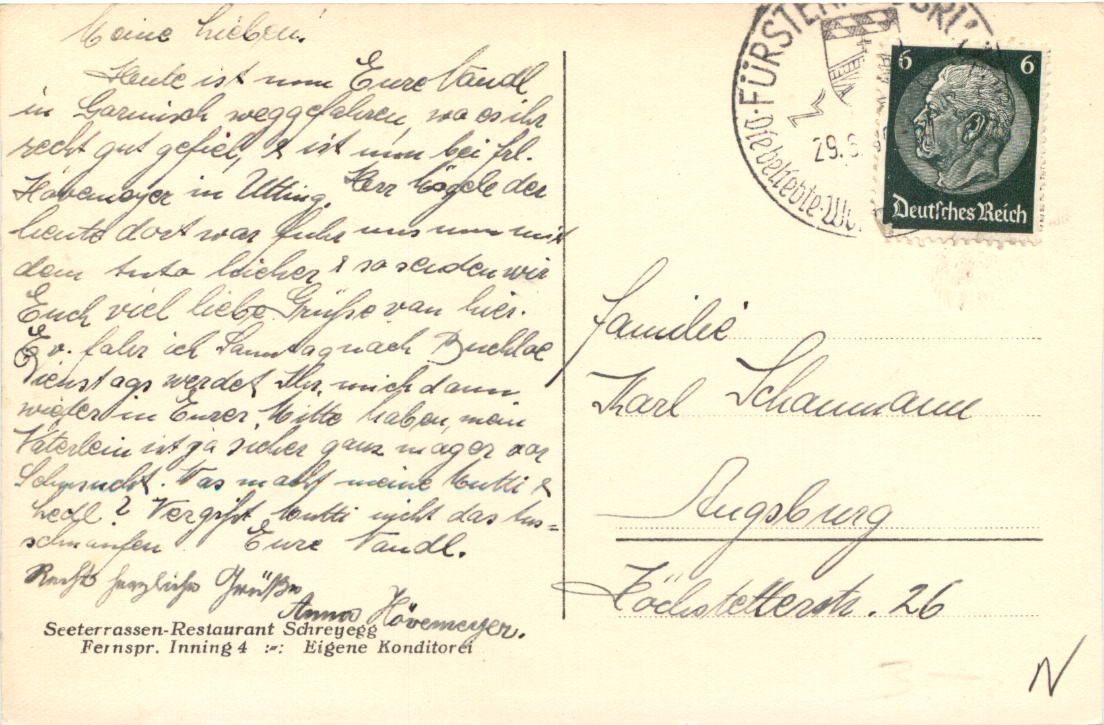 Meine Lieben!
Heute ist nun Eure Wandl
in Garmisch weggefahren, wo es ihr
recht gut gefiel, & ist nun bei Frl.
Hövemeyer in Utting. Herr Mögele der
heute dort war fuhr uns nun mit
dem Auto hieher & so senden wir
Euch viel liebe Grüße von hier.
Ev. fahr ich Sonntag nach Buchloe
Dienstags werdet Ihr mich dann
wieder in Eurer Mitte haben, mein
Väterlein ist ja sicher ganz mager vor
Sehnsucht. Was macht meine Mutti &
Hedl? Vergißt Mutti nicht das Aus=
schnaufen. Eure Wandl.
Recht herzliche Grüße
Anna Hövemeyer.
Seeterrassen-Restaurant Schreyegg
Fernspr. Inning 4 :-: Eigene Konditorei
FÜRSTENFELDBRUCK
29.
Die beliebte
6 6
Deutsches Reich
Familie
Karl Schaumann
Augsburg
Höchstetterstr. 26
N